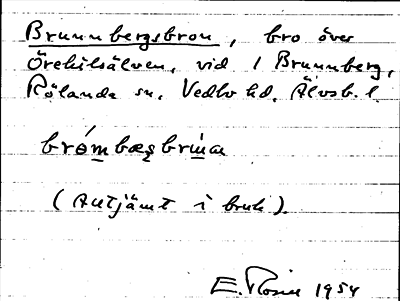 Brunnbergsbron, bro över
Örekilsälven, vid 1 Brunnberg,
Rölanda sn, Vedbo hd, Älvsb. l.
brómbæsbrina
(Alljämt i bruk).
E. Rosin 1954